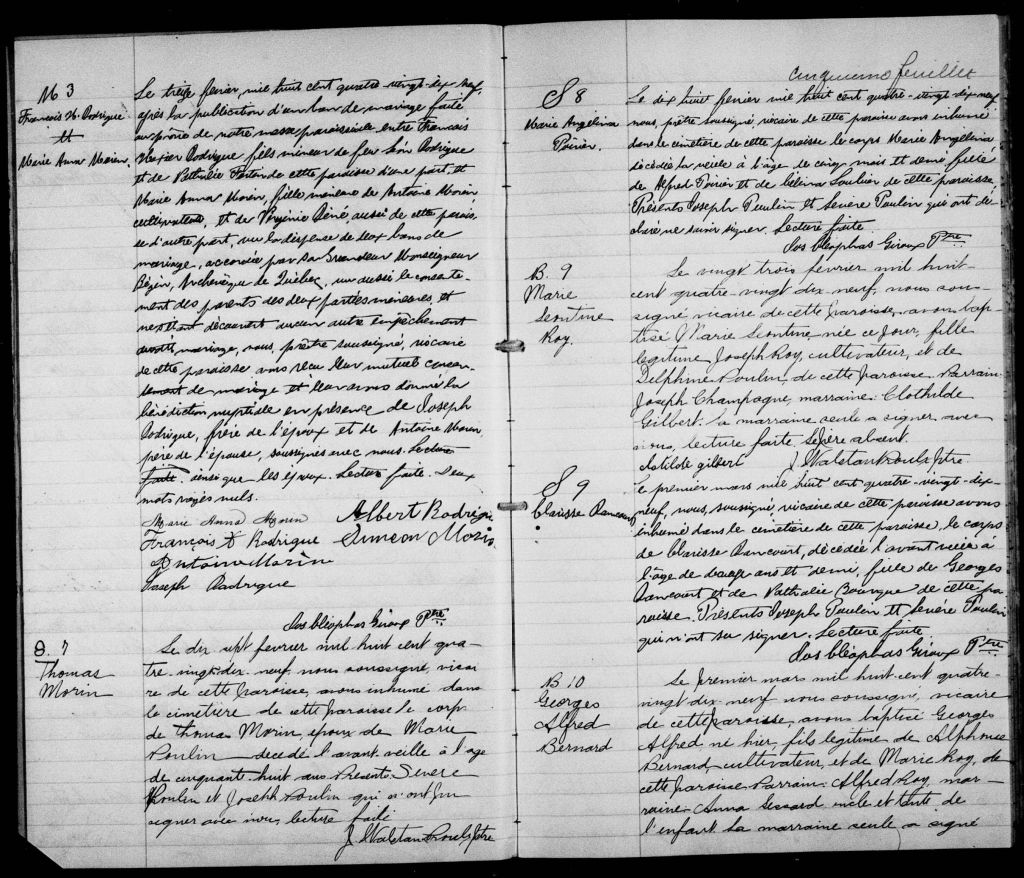 M 3
François X. Rodrigue
et
Marie Anna Morin
Le treize février, mil huit cent quatre-vingt-dix-neuf,
après la publication d'un ban de mariage faite
au prône de notre messe paroissiale entre François
Xavier Rodrigue fils mineur de feu Léon Rodrigue
et de Nathalie de cette paroisse d'une part, et
Marie Anna Morin, fille mineure de Antoine Morin
cultivateur, et de Virginie Céné aussi de cette parois-
se d'autre part, vu la dispense de deux bans de
mariage, accordée par Sa Grandeur Monseigneur
Bégin, Archevêque de Québec, vu aussi le consente-
ment des parents des deux parties mineures, et
ne s'étant découvert aucun autre empêchement
au dit mariage, nous, prêtre soussigné, vicaire
de cette paroisse avons reçu leur mutuel consen-
tement de mariage et leur avons donné la
bénédiction nuptiale en présence de Joseph
Rodrigue, frère de l'époux et de Antoine Morin,
père de l'épouse, soussignés avec nous. Lecture
faite. ainsi que les époux. Lecture faite. Deux
mots rayés nuls.
Marie Anna Morin Albert Rodrigue
François X Rodrigue Simeon Morin
Antoine Morin
Joseph Rodrigue
Jos Cléophas Giroux Ptre
S. 7
Thomas
Morin
Le dix sept fevrier mil huit cent qua-
tre-vingt-dix-neuf, nous soussigné, vicai-
re de cette paroisse, avons inhumé dans
le cimetière de cette paroisse le corp
de Thomas Morin, époux de Marie
Poulin décédé l'avant veille à l'age
de cinquant huit ans Présents Sévère
Poulin et Joseph Poulin qui n'ont pu
signer avec nous, lecture faite
J Walstan Ptre
cinquieme feuillet
S 8
Marie Angélina
Poirier.
Le dix huit février mil huit cent quatre-vingt-dix-neuf
nous, prêtre soussigné, vicaire de cette paroisse avons inhumé
dans le cimetière de cette paroisse le corps Marie Angélina
décédée la veille à l'âge de cinq mois et demi, fille
de Alfred Poirier et de Célina Soulier de cette paroisse.
Présents Joseph Poulin et Sévère Poulin qui ont dé-
claré ne savoir signer. Lecture faite.
Jos Cléophas Giroux Ptre
B. 9
Marie
Leontine
Roy.
Le vingt trois février mil huit-
cent quatre-vingt dix-neuf, nous sous-
signé vicaire de cette paroisse, avons bap-
tisé Marie Leontine, née ce jour, fille
legitime Joseph Roy, cultivateur, et de
Delphine Poulin, de cette paroisse Parrain:
Joseph Champagne, marraine: Clothilde
Gilbert. la marraine seule a signer avec
nous, lecture faite. Le père absent.
clotilde gilbert J Walstan Ptre
S 9
Claisse Rancourt
Le premier mars mil huit cent quatre-vingt-dix-
neuf, nous, soussigné, vicaire de cette paroisse avons
inhumé dans le cimetière de cette paroisse, le corps
de Claisse Rancourt, décédée l'avant veille à
l'âge de douze ans et demi, fille de Georges
Rancourt et de Nathalie Bourque de cette pa-
roisse. Présents Joseph Poulin et Sévère Poulin
qui n'ont su signer. Lecture faite
Jos Cléophas Giroux Ptre
B 10
Georges
Alfred
Bernard
Le premier mars mil huit cent quatre-
vingt dix-neuf nous soussigné, vicaire
de cette paroisse, avons baptisé Georges
Alfred né hier, fils legitime de Alphonse
Bernard cultivateur, et de Marie Roy, de
cette paroisse Parrain: Alfred Roy, mar-
raine: Anna Gerard oncle et tante de
l'enfant La marraine seule a signé